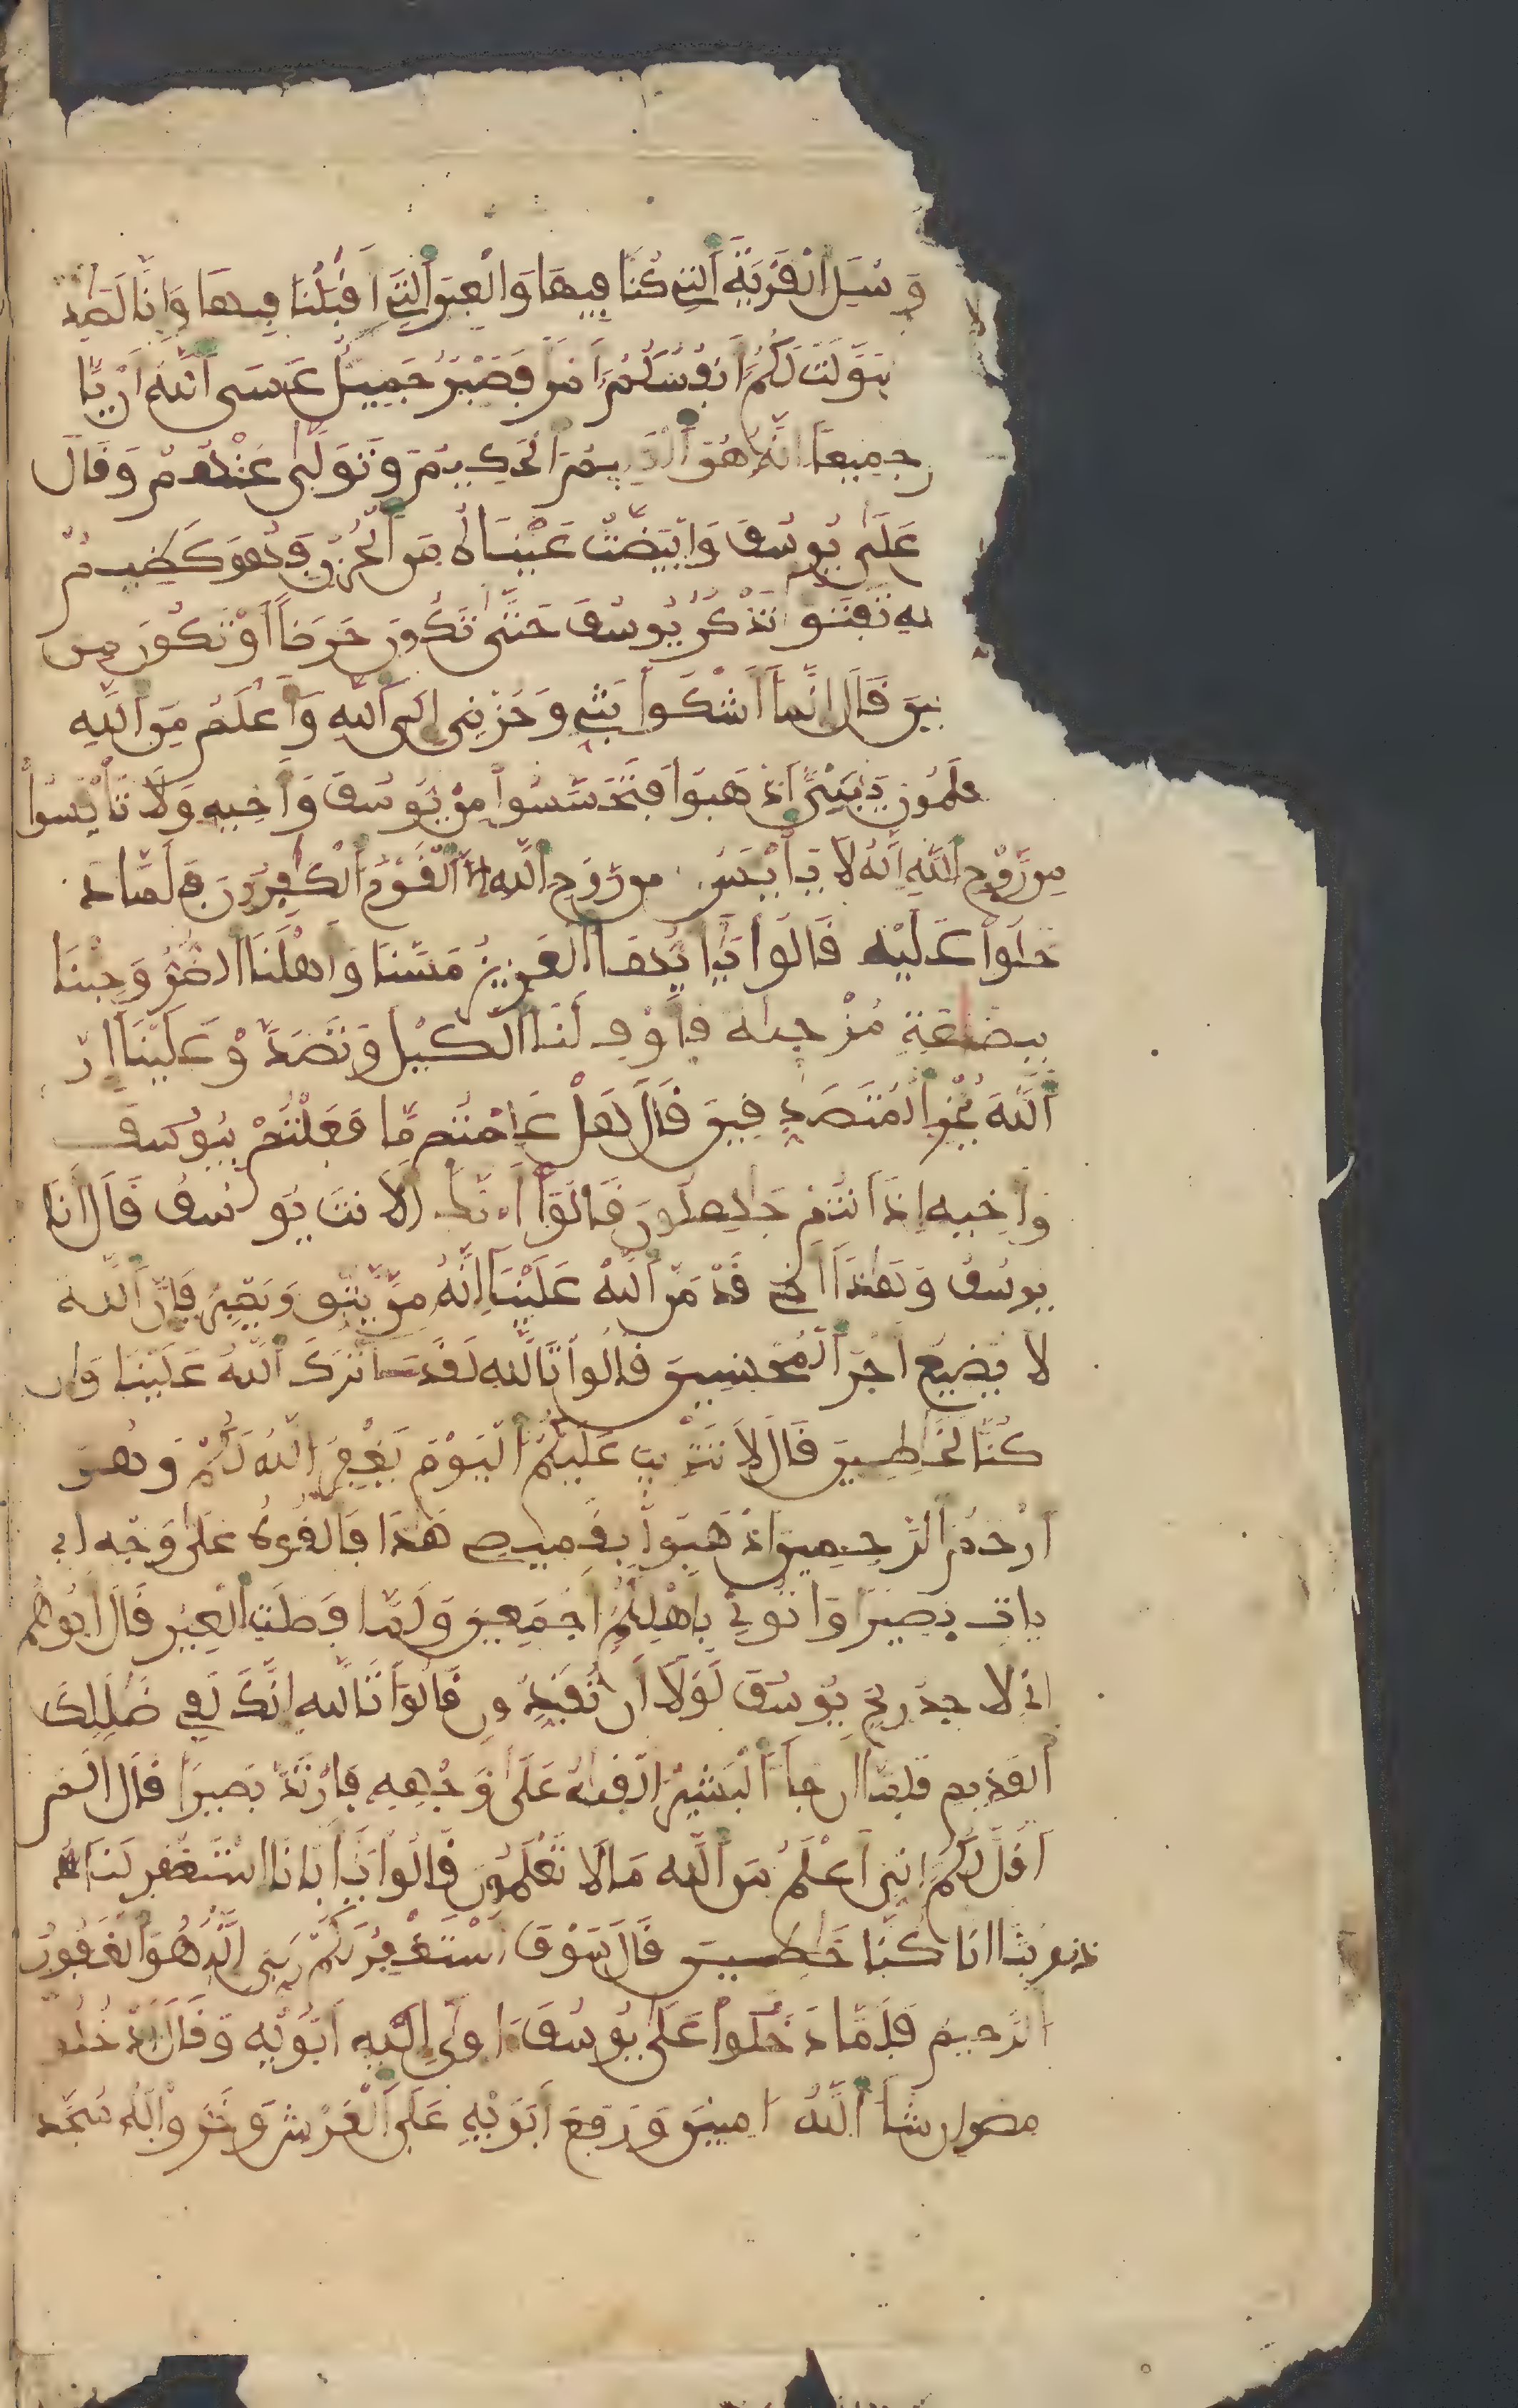 وَسْـَٔلِ الْقَرْيَةَ اَلتِے كُنَّا فِيهَا وَالْعِيرَ اَلتِے أَقْبَلْنَا فِيهَا وَإِنَّا لَصَٰدِ
سَوَّلَتْ لَكُمُ أَنفُسُكُمُ أَمْرًا فَصَبْرٌ جَمِيلٌ عَسَى اَللَّهُ أَنْ يَّا
جَمِيعًا إِنَّهُ هُوَ اَلْعَلِيمُ الْحَكِيمُ وَتَوَلَّىٰ عَنْهُمْ وَقَالَ
عَلَىٰ يُوسُفَ وَابْيَضَّتْ عَيْنَاهُ مِنَ اَلْحُزْنِ فَهُوَ كَظِيمٌ
لهِ تَفْتَؤُا تَذْكُرُ يُوسُفَ حَتَّىٰ تَكُونَ حَرَضًا أَوْ تَكُونَ مِنَ
ينَ قَالَ إِنَّمَا أَشْكُوا بَثِّے وَحُزْنِي إِلَى اَللَّهِ وَأَعْلَمُ مِنَ اَللَّهِ
علَمُونَ يَٰبَنِيَّ اَذْهَبُوا فَتَحَسَّسُوا مِنْ يُّوسُفَ وَأَخِيهِ وَلَا تَاْيْـَٔسُوا
مِن رَّوْحِ اِللَّهِ إِنَّهُ لَا يَاْيْـَٔسُ مِن رَّوْحِ اِللَّهِ إِلَّا اَلْقَوْمُ اَلْكَٰفِرُونَ فَلَمَّا دَ
خَلُوا عَلَيْهِ قَالُوا يَا أَيُّهَا اَلْعَزِيزُ مَسَّنَا وَأَهْلَنَا الضُّرُّ وَجِئْنَا
بِبِضَٰعَةٍ مُزْجَىٰةٍ فَأَوْفِ لَنَا الْكَيْلَ وَتَصَدَّقْ عَلَيْنَا إِنَّ
اَللَّهَ يَجْزِے اِلْمُتَصَدِّقِينَ قَالَ هَلْ عَلِمْتُم مَّا فَعَلْتُمْ بِيُوسُفَ
وَأَخِيهِ إِذَ أَنتُمْ جَٰهِلُونَ قَالُوا أَ۟نَّكَ لَأَنتَ يُوسُفُ قَالَ أَنَا
يُوسُفُ وَهَٰذَا أَخِے قَدْ مَنَّ اَللَّهُ عَلَيْنَا إِنَّهُ مَن يَّتَّقِ وَيَصْبِرْ فَإِنَّ اَللَّهَ
لَا يُضِيعُ أَجْرَ اَلْمُحْسِنِينَ قَالُوا تَاللَّهِ لَقَدَ اٰثَرَكَ اَللَّهُ عَلَيْنَا وَإِن
كُنَّا لَخَٰطِـِٔينَ قَالَ لَا تَثْرِيبَ عَلَيْكُمُ الْيَوْمَ يَغْفِرُ اللَّهُ لَكُمْ وَهُوَ
أَرْحَمُ اَلرَّٰحِمِينَ اَذْهَبُوا بِقَمِيصِے هَٰذَا فَأَلْقُوهُ عَلَىٰ وَجْهِ أَبِي
يَاتِ بَصِيرًا وَاتُونِے بِأَهْلِكُمُ أَجْمَعِينَ وَلَمَّا فَصَلَتِ اِلْعِيرُ قَالَ أَبُوهُمُ
إِنِّے لَأَجِدُ رِيحَ يُوسُفَ لَوْلَا أَن تُفَنِّدُونِ قَالُوا تَاللَّهِ إِنَّكَ لَفِے ضَلَٰلِكَ
اَلْقَدِيمِ فَلَمَّا أَن جَا اَلْبَشِيرُ أَلْقَىٰهُ عَلَىٰ وَجْهِهِ فَارْتَدَّ بَصِيرًا قَالَ أَلَمَ
أَقُل لَّكُمُ إِنِّيَ أَعْلَمُ مِنَ اَللَّهِ مَا لَا تَعْلَمُونَ قَالُوا يَا أَبَانَا اسْتَغْفِرْ لَنَا
ذُنُوبَنَا إِنَّا كُنَّا خَٰطِـِٔينَ قَالَ سَوْفَ أَسْتَغْفِرُ لَكُمْ رَبِّيَ إِنَّهُ هُوَ اَلْغَفُورُ
الرَّحِيمُ فَلَمَّا دَخَلُوا عَلَىٰ يُوسُفَ ءَاوَىٰ إِلَيْهِ أَبَوَيْهِ وَقَالَ اَدْخُلُوا
مِصْرَ إِن شَا اَللَّهُ ءَامِنِينَ وَرَفَعَ أَبَوَيْهِ عَلَى اَلْعَرْشِ وَخَرُّوا لَهُ سُجَّد